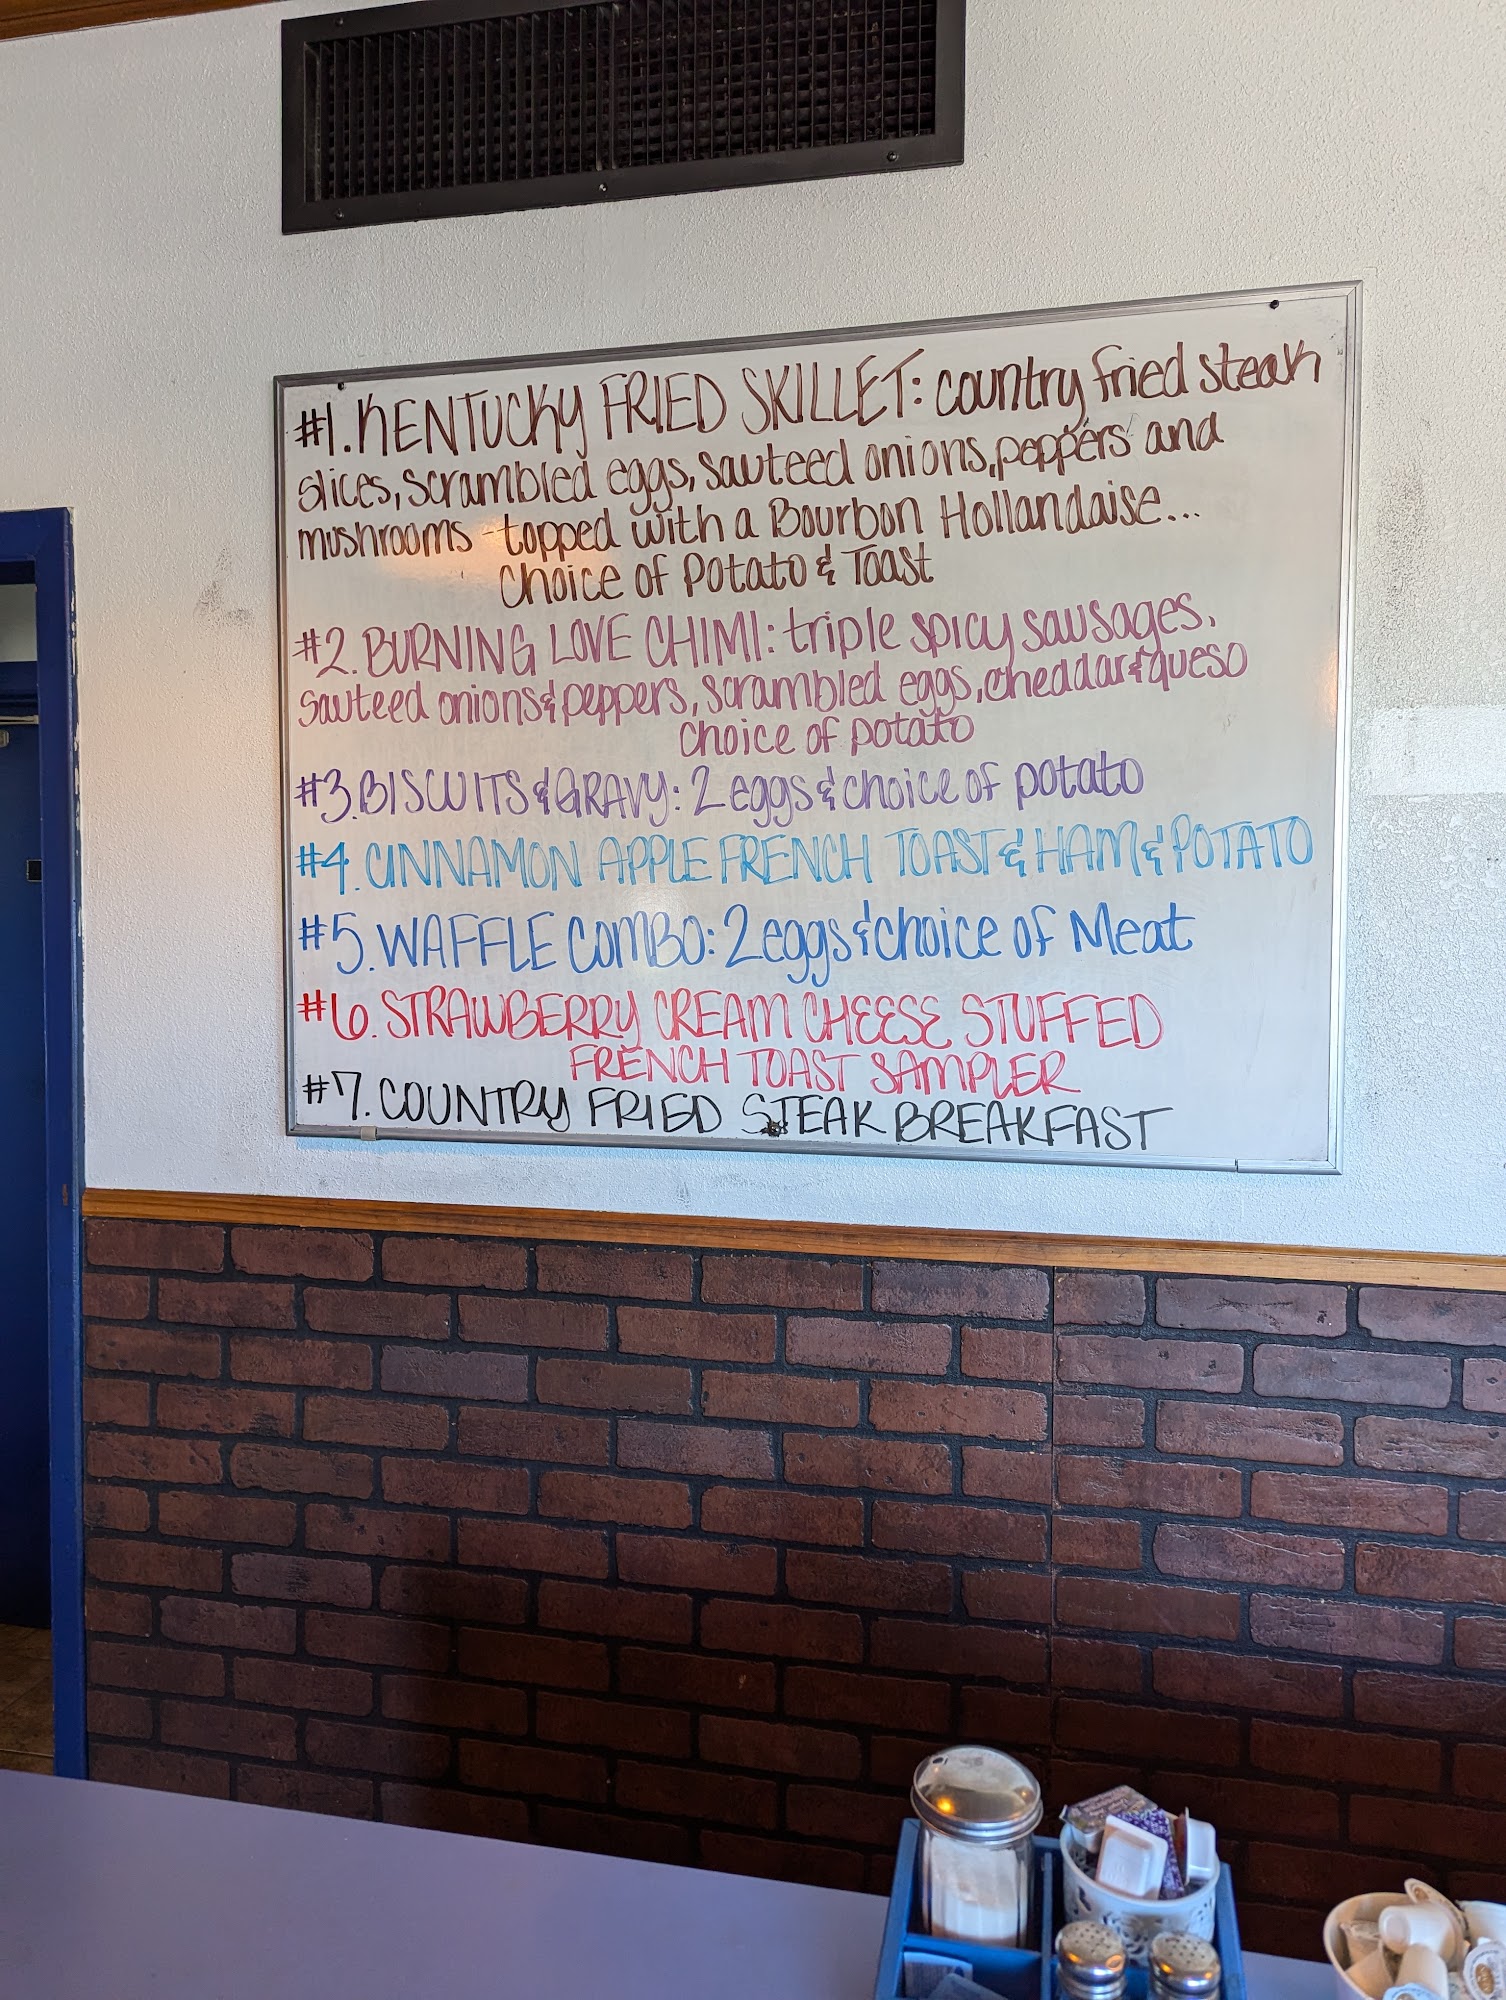 #1. KENTUCKY FRIED SKILLET: country fried steak
slices, scrambled eggs, sauteed onions, peppers and
mushrooms - topped with a Bourbon Hollandaise...
Choice of Potato & Toast
#2. BURNING LOVE CHIMI: triple spicy sausages,
sauteed onions & peppers, scrambled eggs, cheddar & queso
choice of potato
#3. BISCUITS & GRAVY: 2 eggs & choice of potato
#4. CINNAMON APPLE FRENCH TOAST & HAM & POTATO
#5. WAFFLE COMBO: 2 eggs & choice of Meat
#6. STRAWBERRY CREAM CHEESE STUFFED
FRENCH TOAST SAMPLER
#7. COUNTRY FRIED STEAK BREAKFAST